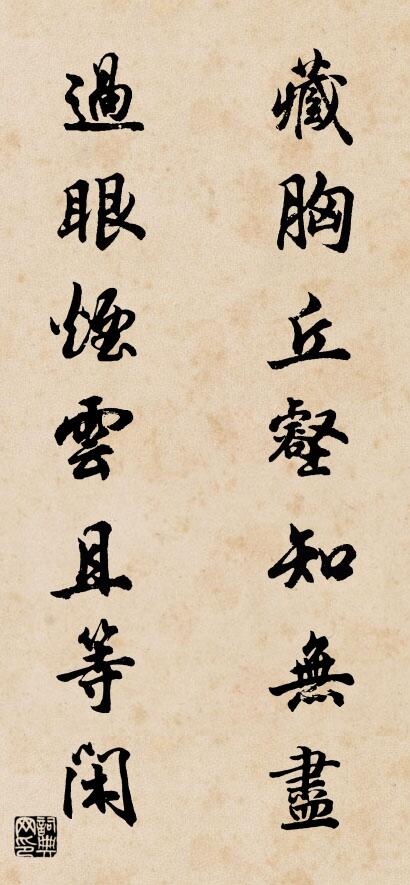 藏胸丘壑知無盡
過眼煙雲且等閑
詞典網印